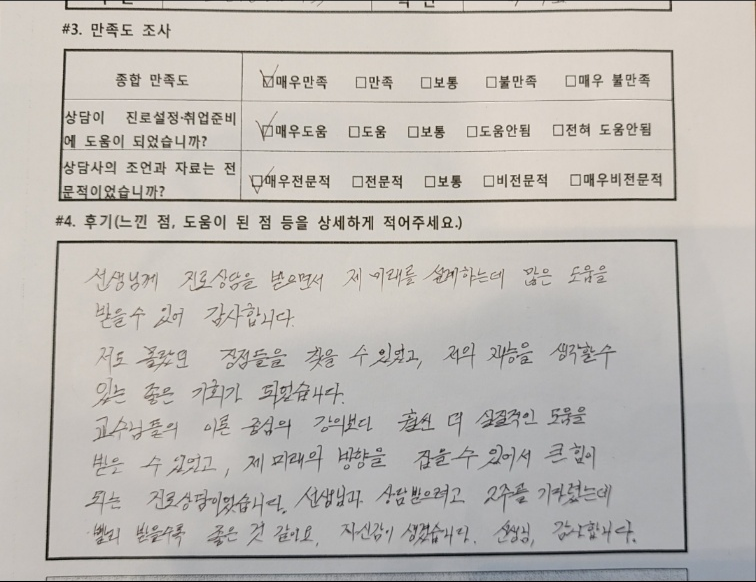 #3. 만족도 조사
종합 만족도 ☑매우만족 □만족 □보통 □불만족 □매우 불만족
상담이 진로설정·취업준비
에 도움이 되었습니까? ☑매우도움 □도움 □보통 □도움안됨 □전혀 도움안됨
상담사의 조언과 자료는 전
문적이었습니까? ☑매우전문적 □전문적 □보통 □비전문적 □매우비전문적
#4. 후기(느낀 점, 도움이 된 점 등을 상세하게 적어주세요.)
선생님께 진로상담을 받으면서 제 미래를 설계하는데 많은 도움을
받을 수 있어 감사합니다.
저도 몰랐던 장점들을 찾을 수 있었고, 저의 재능을 생각할 수
있는 좋은 기회가 되었습니다.
교수님들의 이론 중심의 강의보다 훨씬 더 실질적인 도움을
받은 수 있었고, 제 미래의 방향을 잡을 수 있어서 큰 힘이
되는 진로상담이었습니다. 선생님과 상담받으려고 2주를 기다렸는데
빨리 받을수록 좋은 것 같아요. 자신감이 생겼습니다. 선생님, 감사합니다.